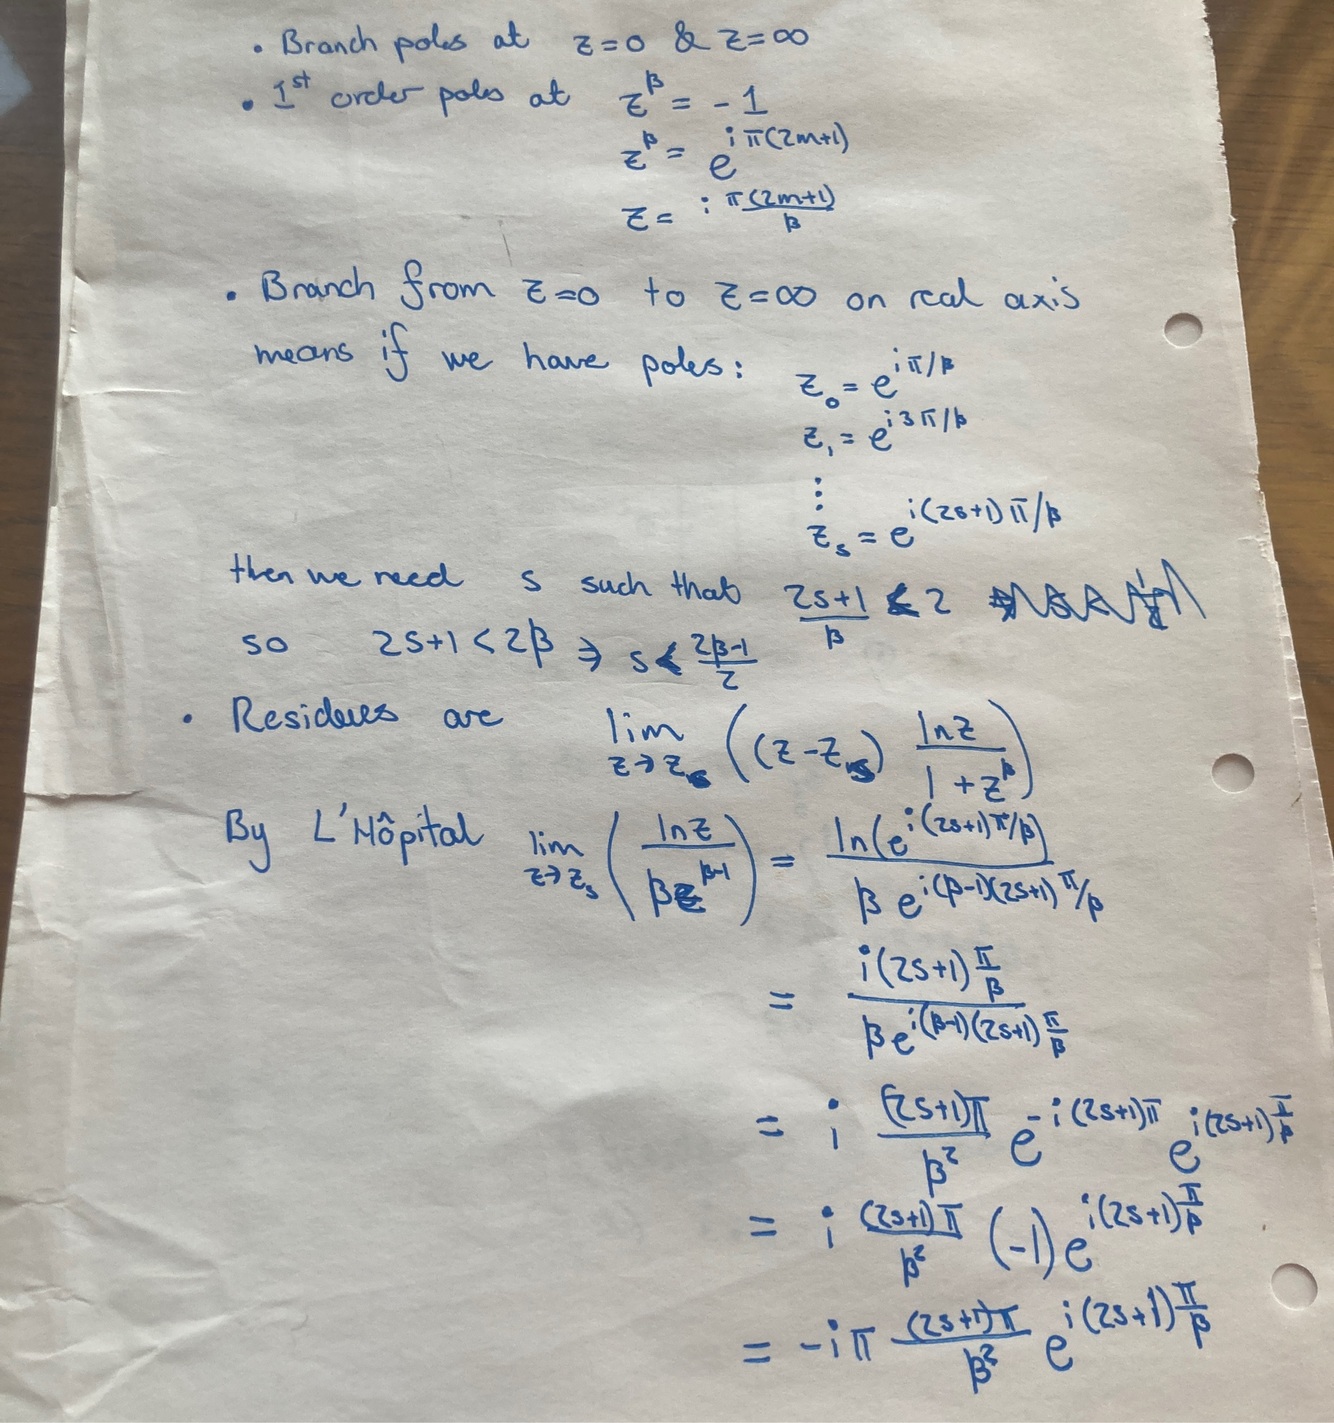 • Branch poles at z=0 & z=∞
• 1st order poles at z^β = -1
z^β = e^{iπ(2m+1)}
z = i π(2m+1)/β
• Branch from z=0 to z=∞ on real axis
means if we have poles: z_0 = e^{iπ/β}
z_1 = e^{i3π/β}
⋮
z_s = e^{i(2s+1)π/β}
then we need s such that (2s+1)/β < 2
so 2s+1 < 2β ⇒ s < (2β-1)/2
• Residues are lim_{z→z_s} ((z-z_s) ln z/(1+z^β))
By L'Hôpital lim_{z→z_s} (ln z/(βz^{β-1})) = ln(e^{i(2s+1)π/β})/(β e^{i(β-1)(2s+1)π/β})
= i(2s+1)π/β / (β e^{i(β-1)(2s+1)π/β})
= i (2s+1)π/β² e^{-i(2s+1)π} e^{i(2s+1)π/β}
= i (2s+1)π/β² (-1) e^{i(2s+1)π/β}
= -iπ (2s+1)π/β² e^{i(2s+1)π/β}